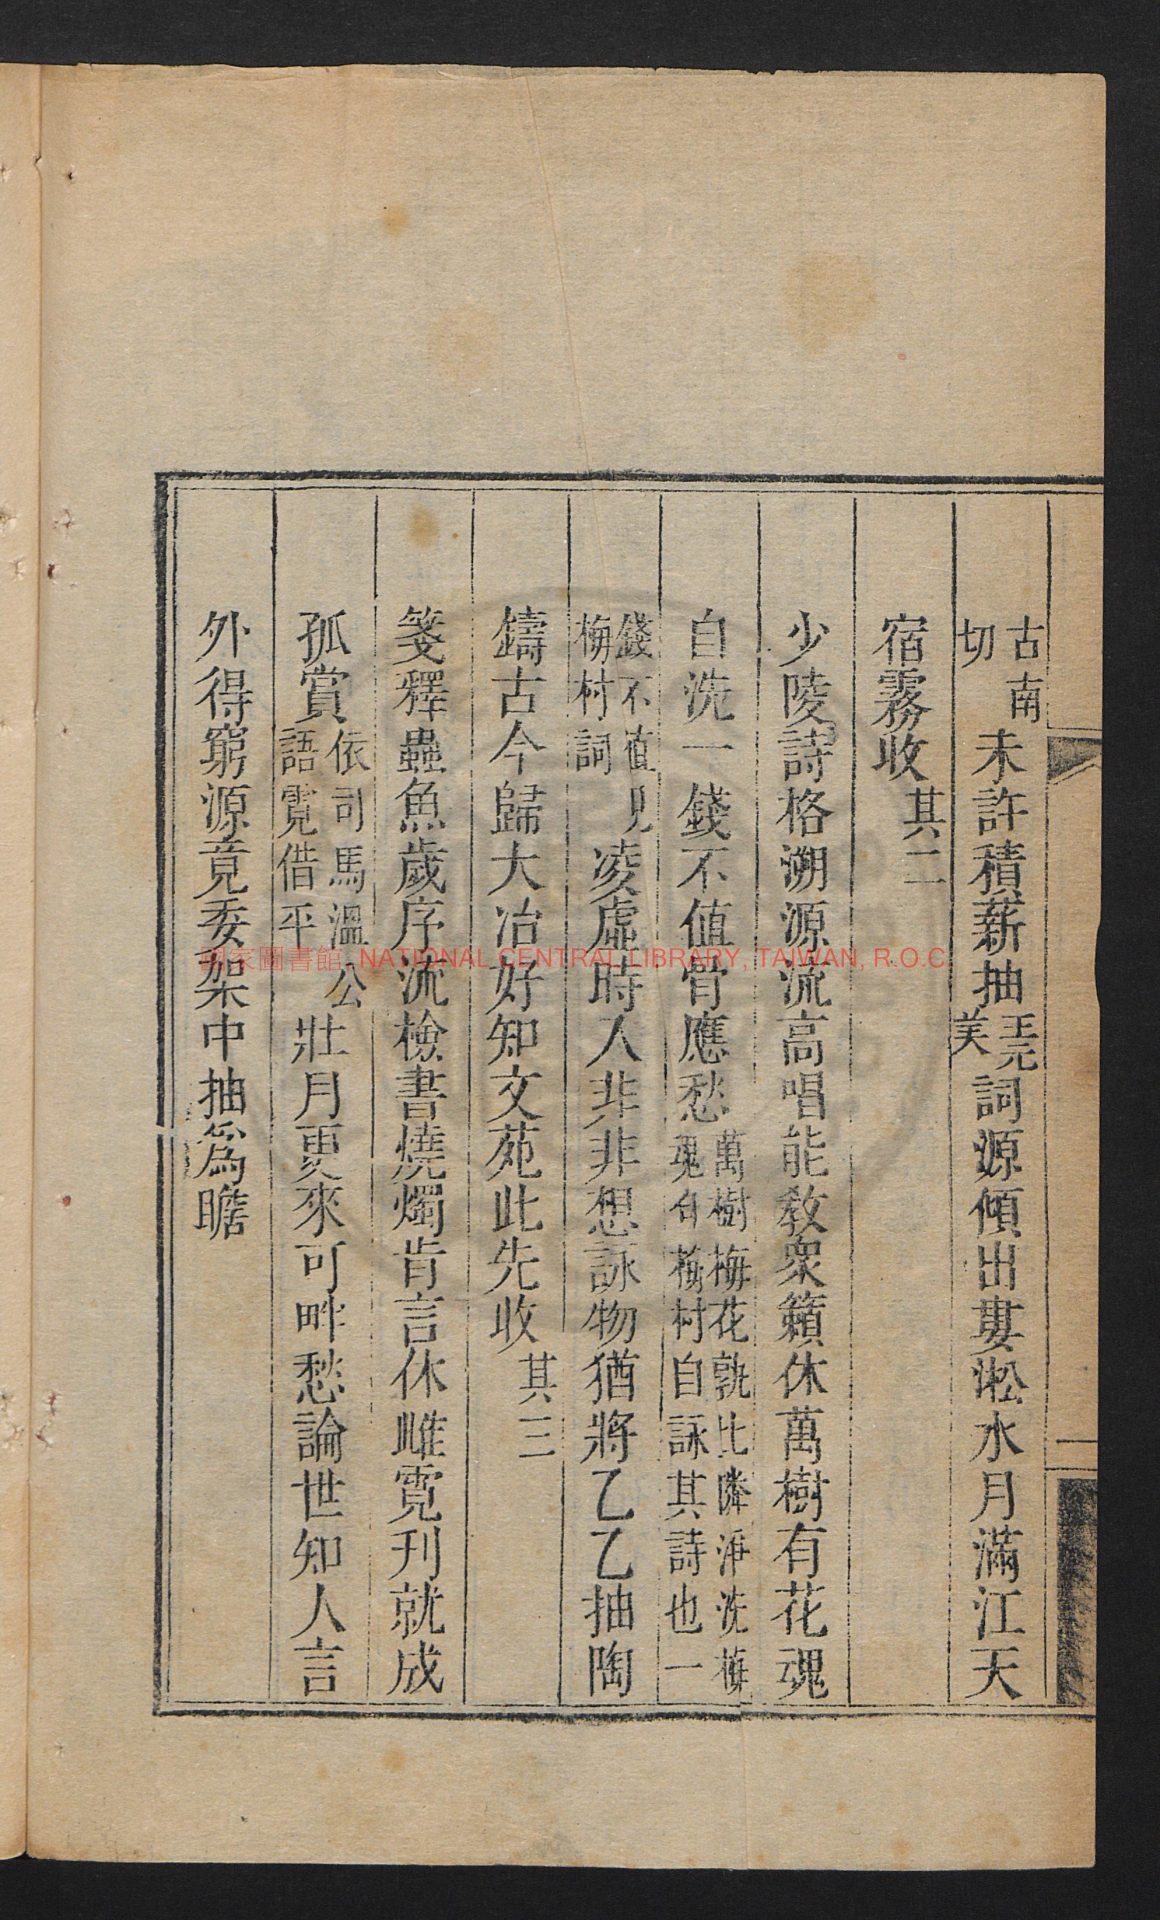 古南
切
未許積薪抽
王元
美
詞源傾出婁淞水月滿江天
宿霧收
其二
少陵詩格溯源流高唱能教衆籟休萬樹有花魂
自洗一錢不值骨應愁
萬樹梅花孰比隣淨洗梅
魂句梅村自詠其詩也一
錢不值見
梅村詞
凌虛時入非非想詠物猶將乙乙抽陶
鑄古今歸大冶好知文苑此先收
其三
箋釋蟲魚歲序流檢書燒燭肯言休雌霓刊就成
孤賞
依司馬溫公
語霓借平
壯月更來可畔愁論世知人言
外得窮源竟委架中抽爲瞻
國家圖書館, NATIONAL CENTRAL LIBRARY, TAIWAN, R.O.C